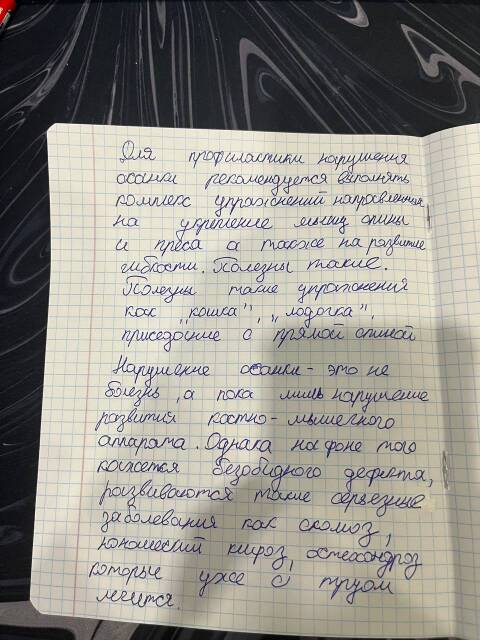 Для профиластики нарушения
осанки рекомендуется выполнять
комплекс упражнений направленных
на укрепление мышц спины
и преса а также на развитие
гибкости. Полезны такие.
Полезны такие упражнения
как "кошка", "лодочка",
приседание с прямой спиной
Нарушение осанки - это не
болезнь, а пока лишь нарушение
развития костно-мышечного
аппарата. Однака на фоне того
кажется безобидного дефекта,
развиваются такие серьезные
заболевания как сколиоз,
юношеский кифоз, остехондроз
которые уже с трудом
лечится.